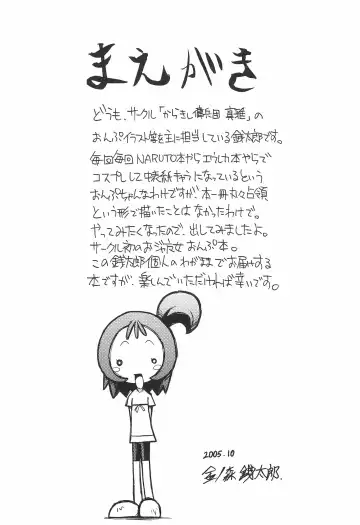 まえがき
どうも、サークル「からきし傭兵団 真誕」の
おんぷイラスト等を主に担当している銭太郎です。
毎回毎回NARUTO本やらエウレカ本やらで
コスプレして中表紙キャラになっているという
おんぷちゃんなわけですが、本一冊丸々占領
という形で描いたことはなかったわけで。
やってみたくなったので、出してみましたよ。
サークル初のおジャ魔女おんぷ本。
この銭太郎個人のわがままでお届けする
本ですが、楽しんでいただければ幸いです。
2005.10
金ノ森 銭太郎.